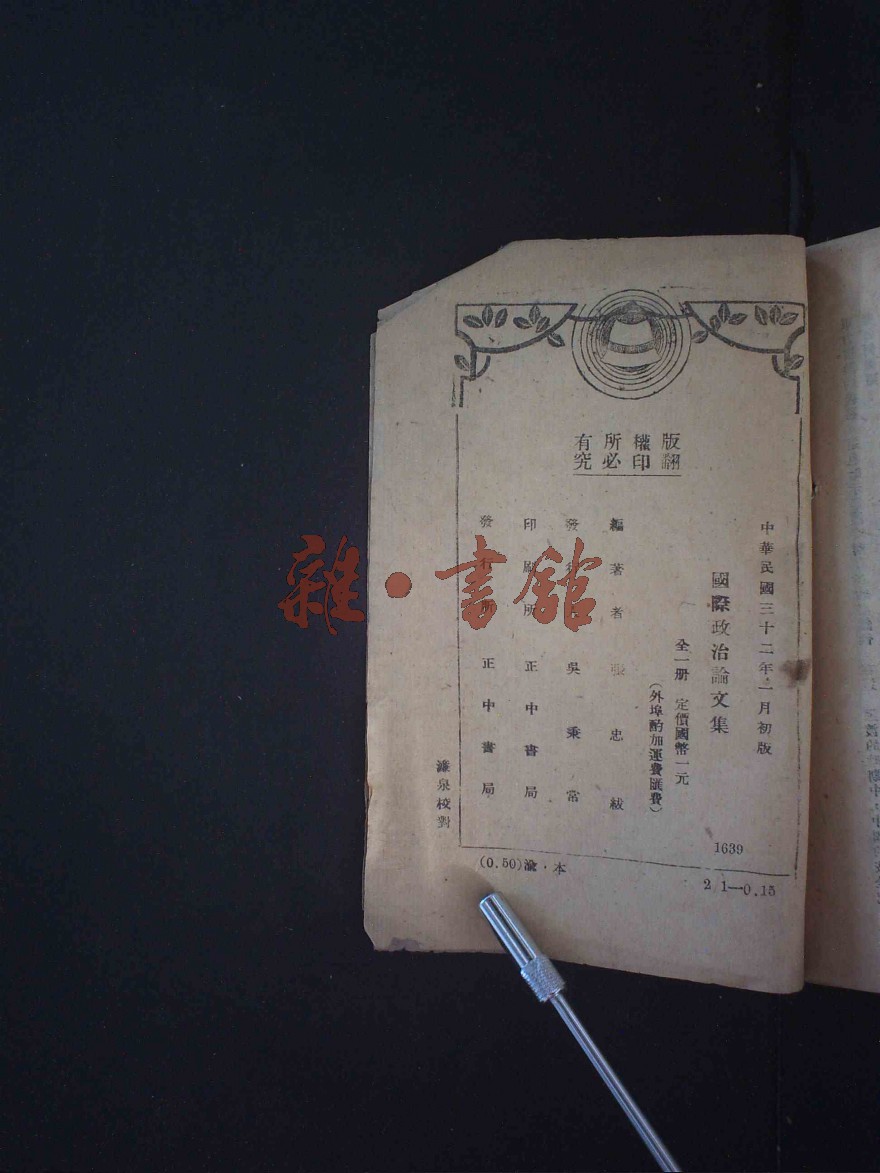 版權所有
翻印必究
中華民國三十二年二月初版
國際政治論文集
全一册 定價國幣一元
(外埠酌加運費匯費)
編著者 張忠紱
發行 吳秉常
印刷所 正中書局
發行所 正中書局
校對
1639
(0.50) 渝·本
2 1—0.15
雜·書館